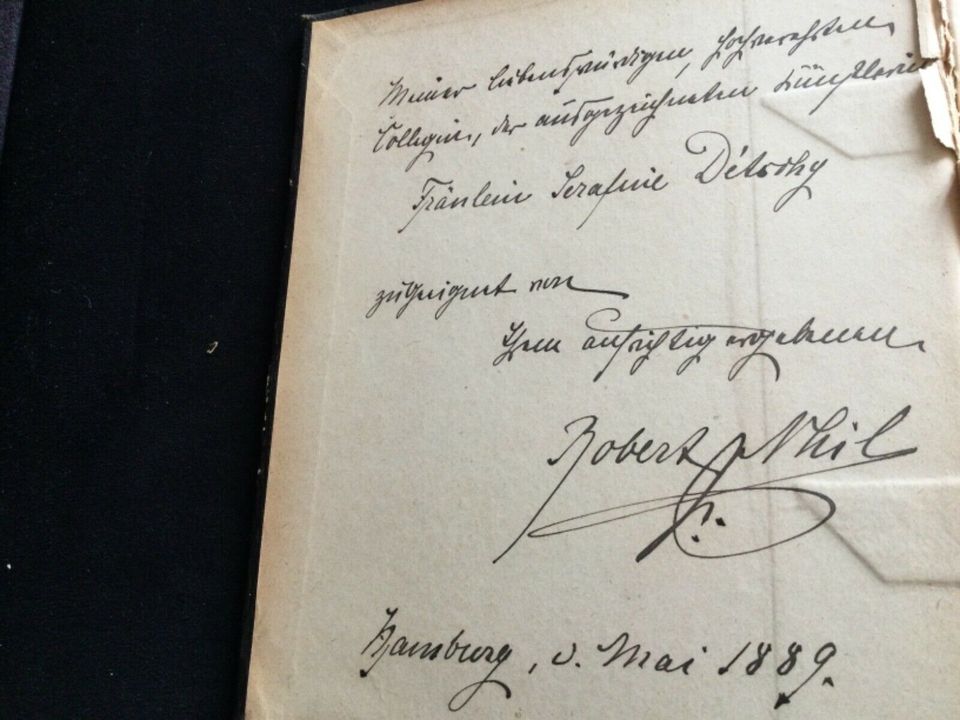 Meiner liebenswürdigen, hochverehrten
Collegin, der ausgezeichneten Künstlerin
Fräulein Serafine Détschy
zugeeignet von
Ihrem aufrichtig ergebenen
Robert Nhil
Hamburg, d. Mai 1889.